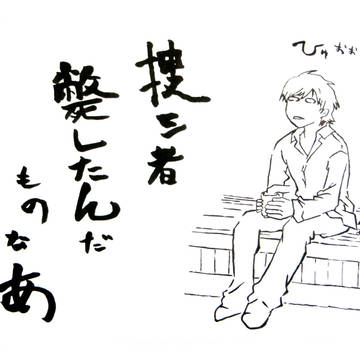 捜三者
斃したんだ
ものなあ
ひゅおお